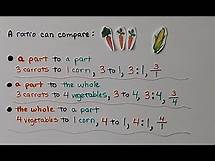 A ratio can compare:
a part to a part
3 carrots to 1 corn, 3 to 1, 3:1, 3/1
a part to the whole
3 carrots to 4 vegetables, 3 to 4, 3:4, 3/4
the whole to a part
4 vegetables to 1 corn, 4 to 1, 4:1, 4/1